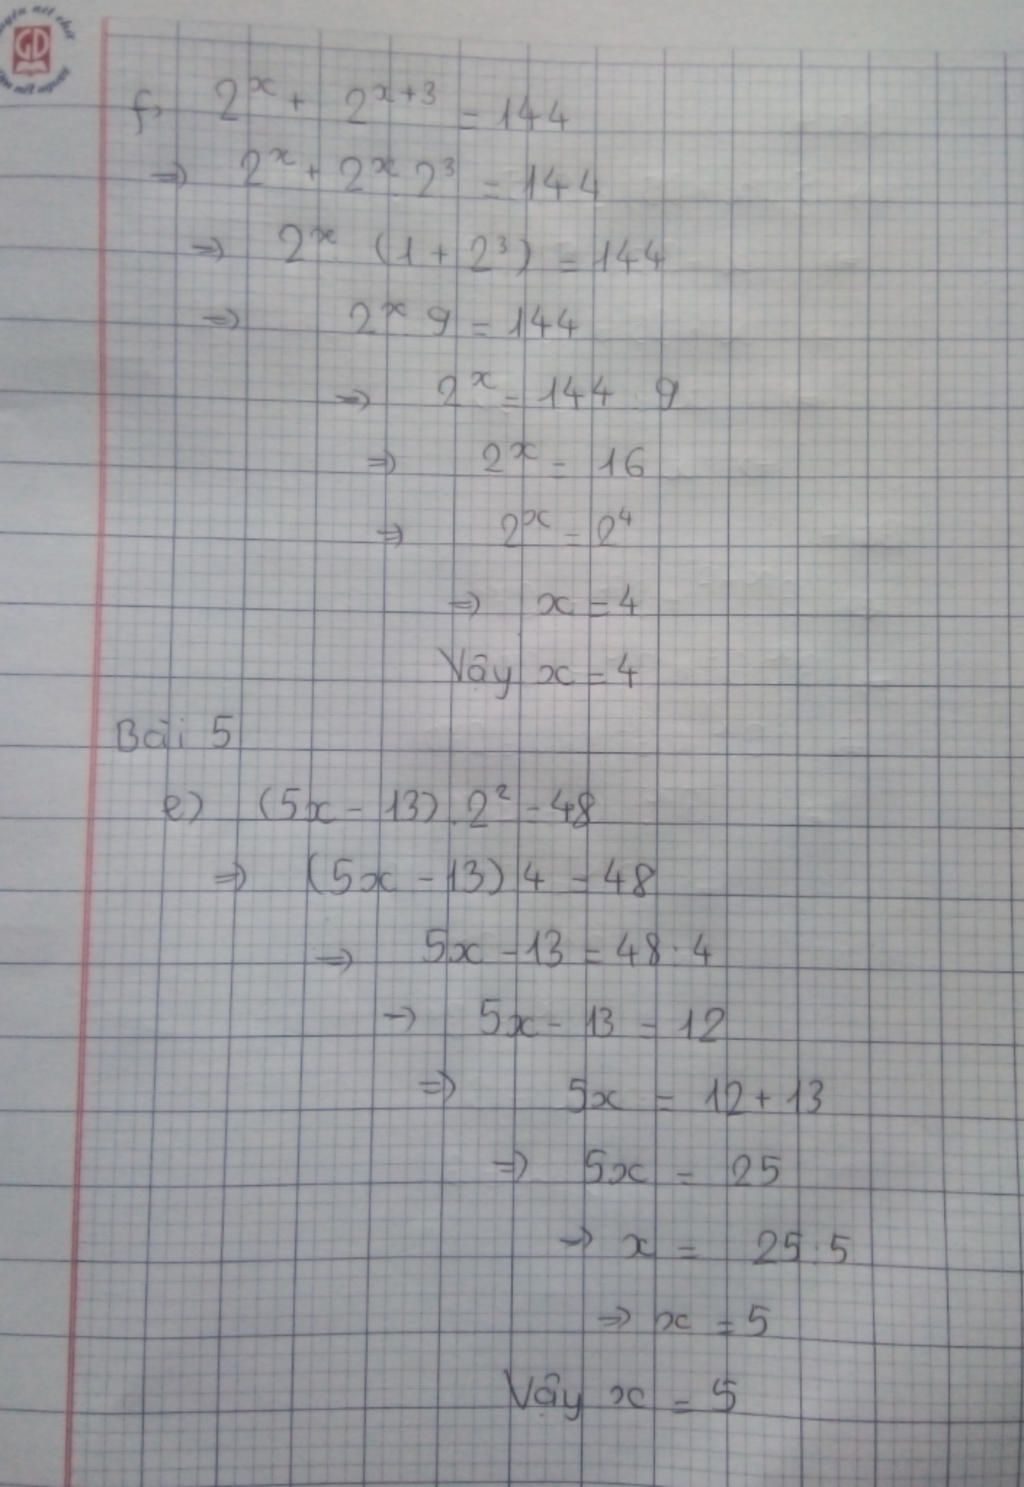 GD
f, 2^x + 2^{x+3} = 144
=> 2^x + 2^x 2^3 = 144
=> 2^x (1 + 2^3) = 144
=> 2^x 9 = 144
=> 2^x = 144 : 9
=> 2^x = 16
=> 2^x = 2^4
=> x = 4
Vậy x = 4
Bài 5
e) (5x - 13) . 2^2 = 48
=> (5x - 13) 4 = 48
=> 5x - 13 = 48 : 4
=> 5x - 13 = 12
=> 5x = 12 + 13
=> 5x = 25
=> x = 25 : 5
=> x = 5
Vậy x = 5